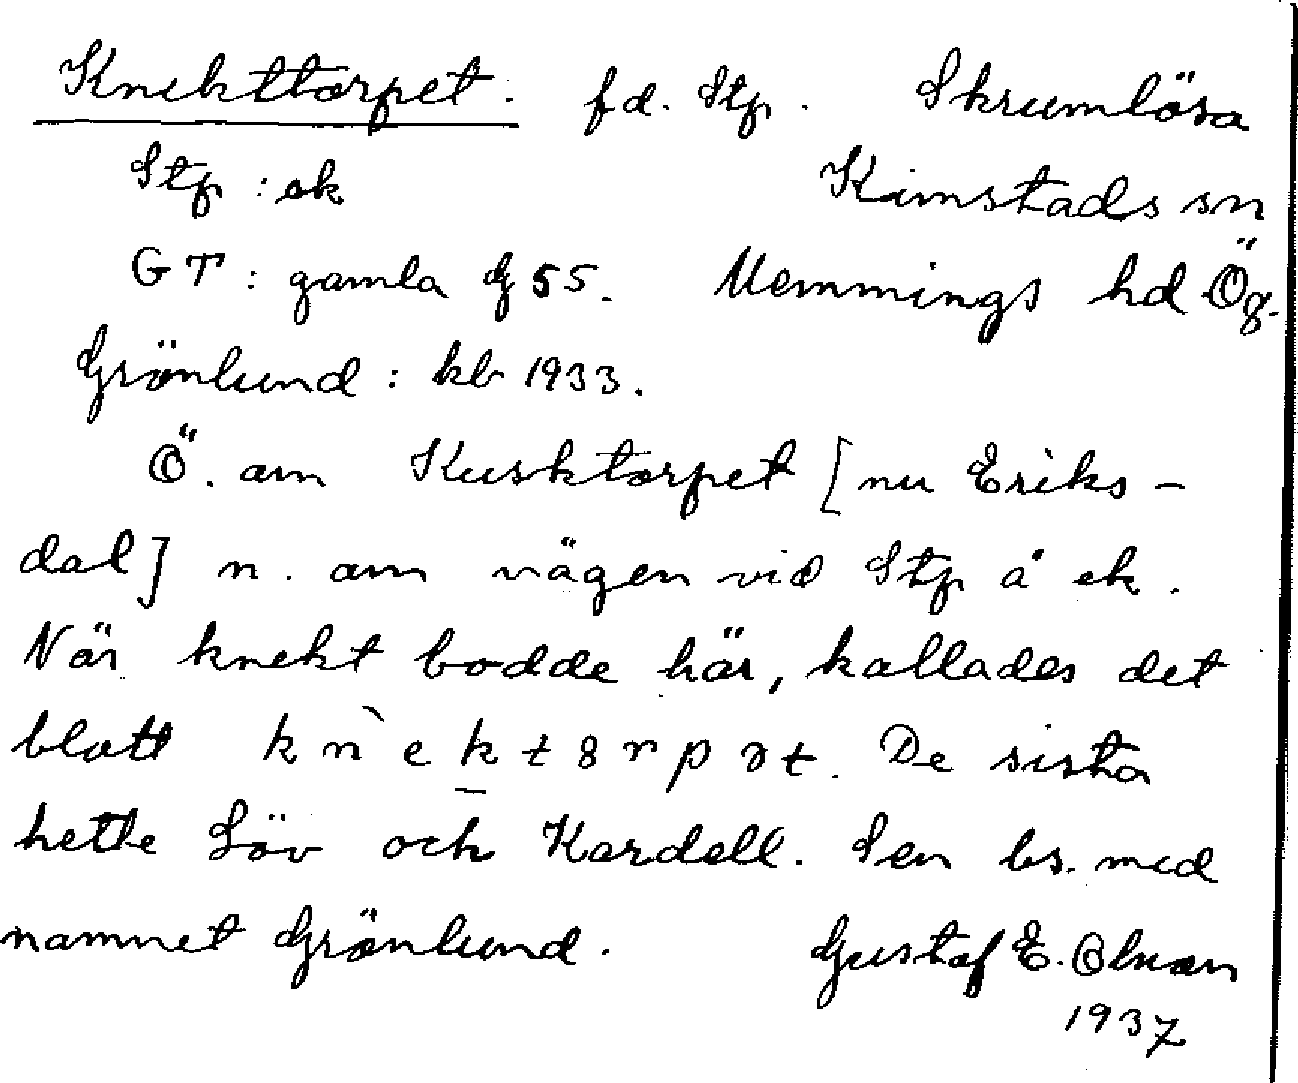 Knekttorpet. fd. Stp. Skrumlösa
Stp : ek Kimstads sn
GT : gamla G 55. Memmings hd Ög.
Grönlund : kb 1933.
Ö. om Kusktorpet [nu Eriks-
dal] n. om vägen vid Stp å ek.
När knekt bodde här, kallades det
blott kn`ektɞrpət. De sista
hette Löv och Kardell. Sen bs. med
namnet Grönlund. Gustaf E. Olsson
1937